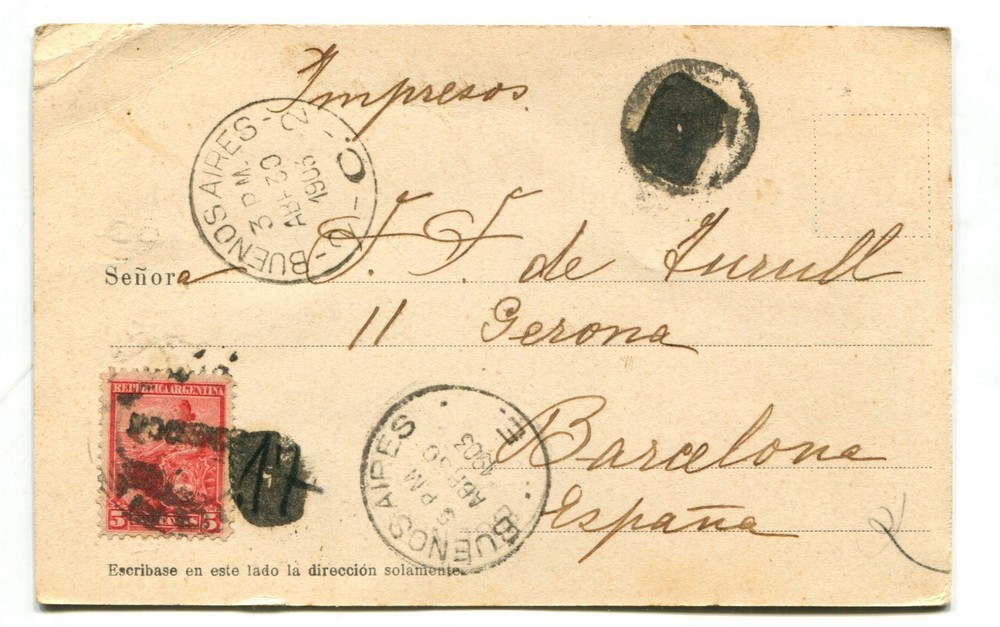 Impresos.
BUENOS AIRES
3 P.M.
AB-30
1903
Señora F. F. de Turull
11 Gerona
Barcelona
España
REPUBLICA ARGENTINA
5 5
17
BUENOS AIRES
5 PM
ABR 30
1903
E
Escribase en este lado la dirección solamente.
2